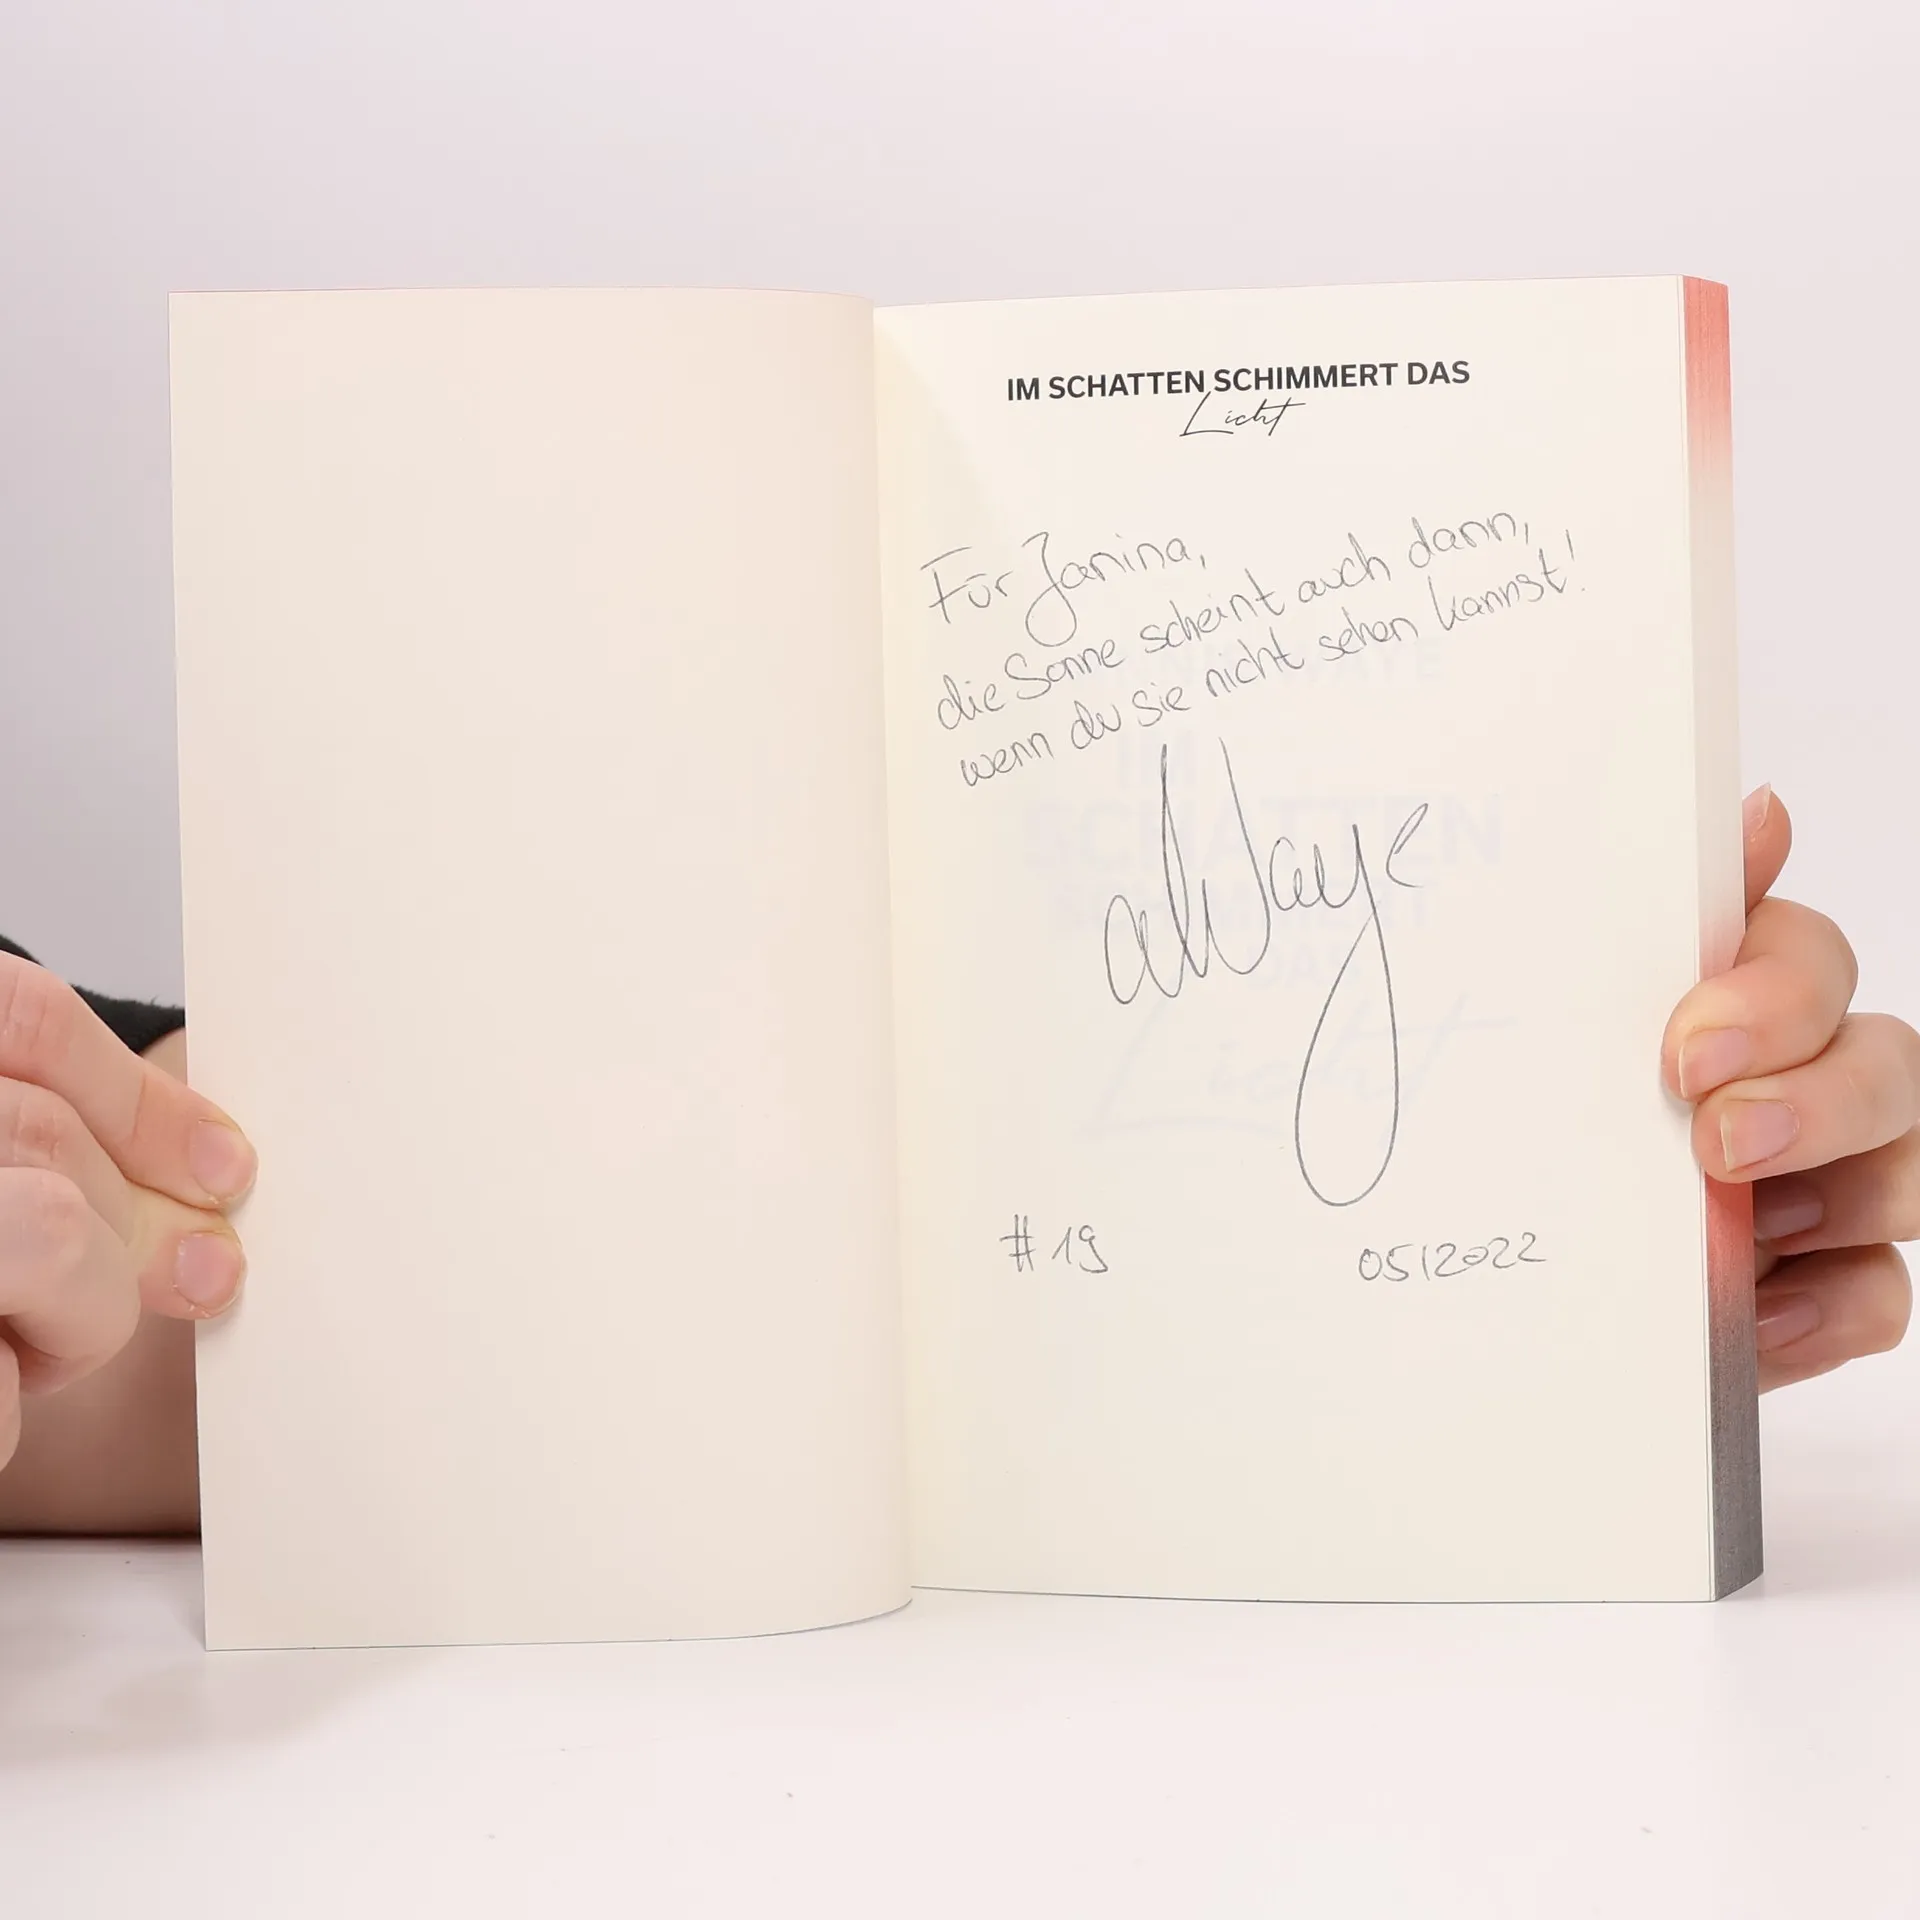 IM SCHATTEN SCHIMMERT DAS
Licht
Für Janina,
die Sonne scheint auch dann,
wenn du sie nicht sehen kannst!
#19
05/2022